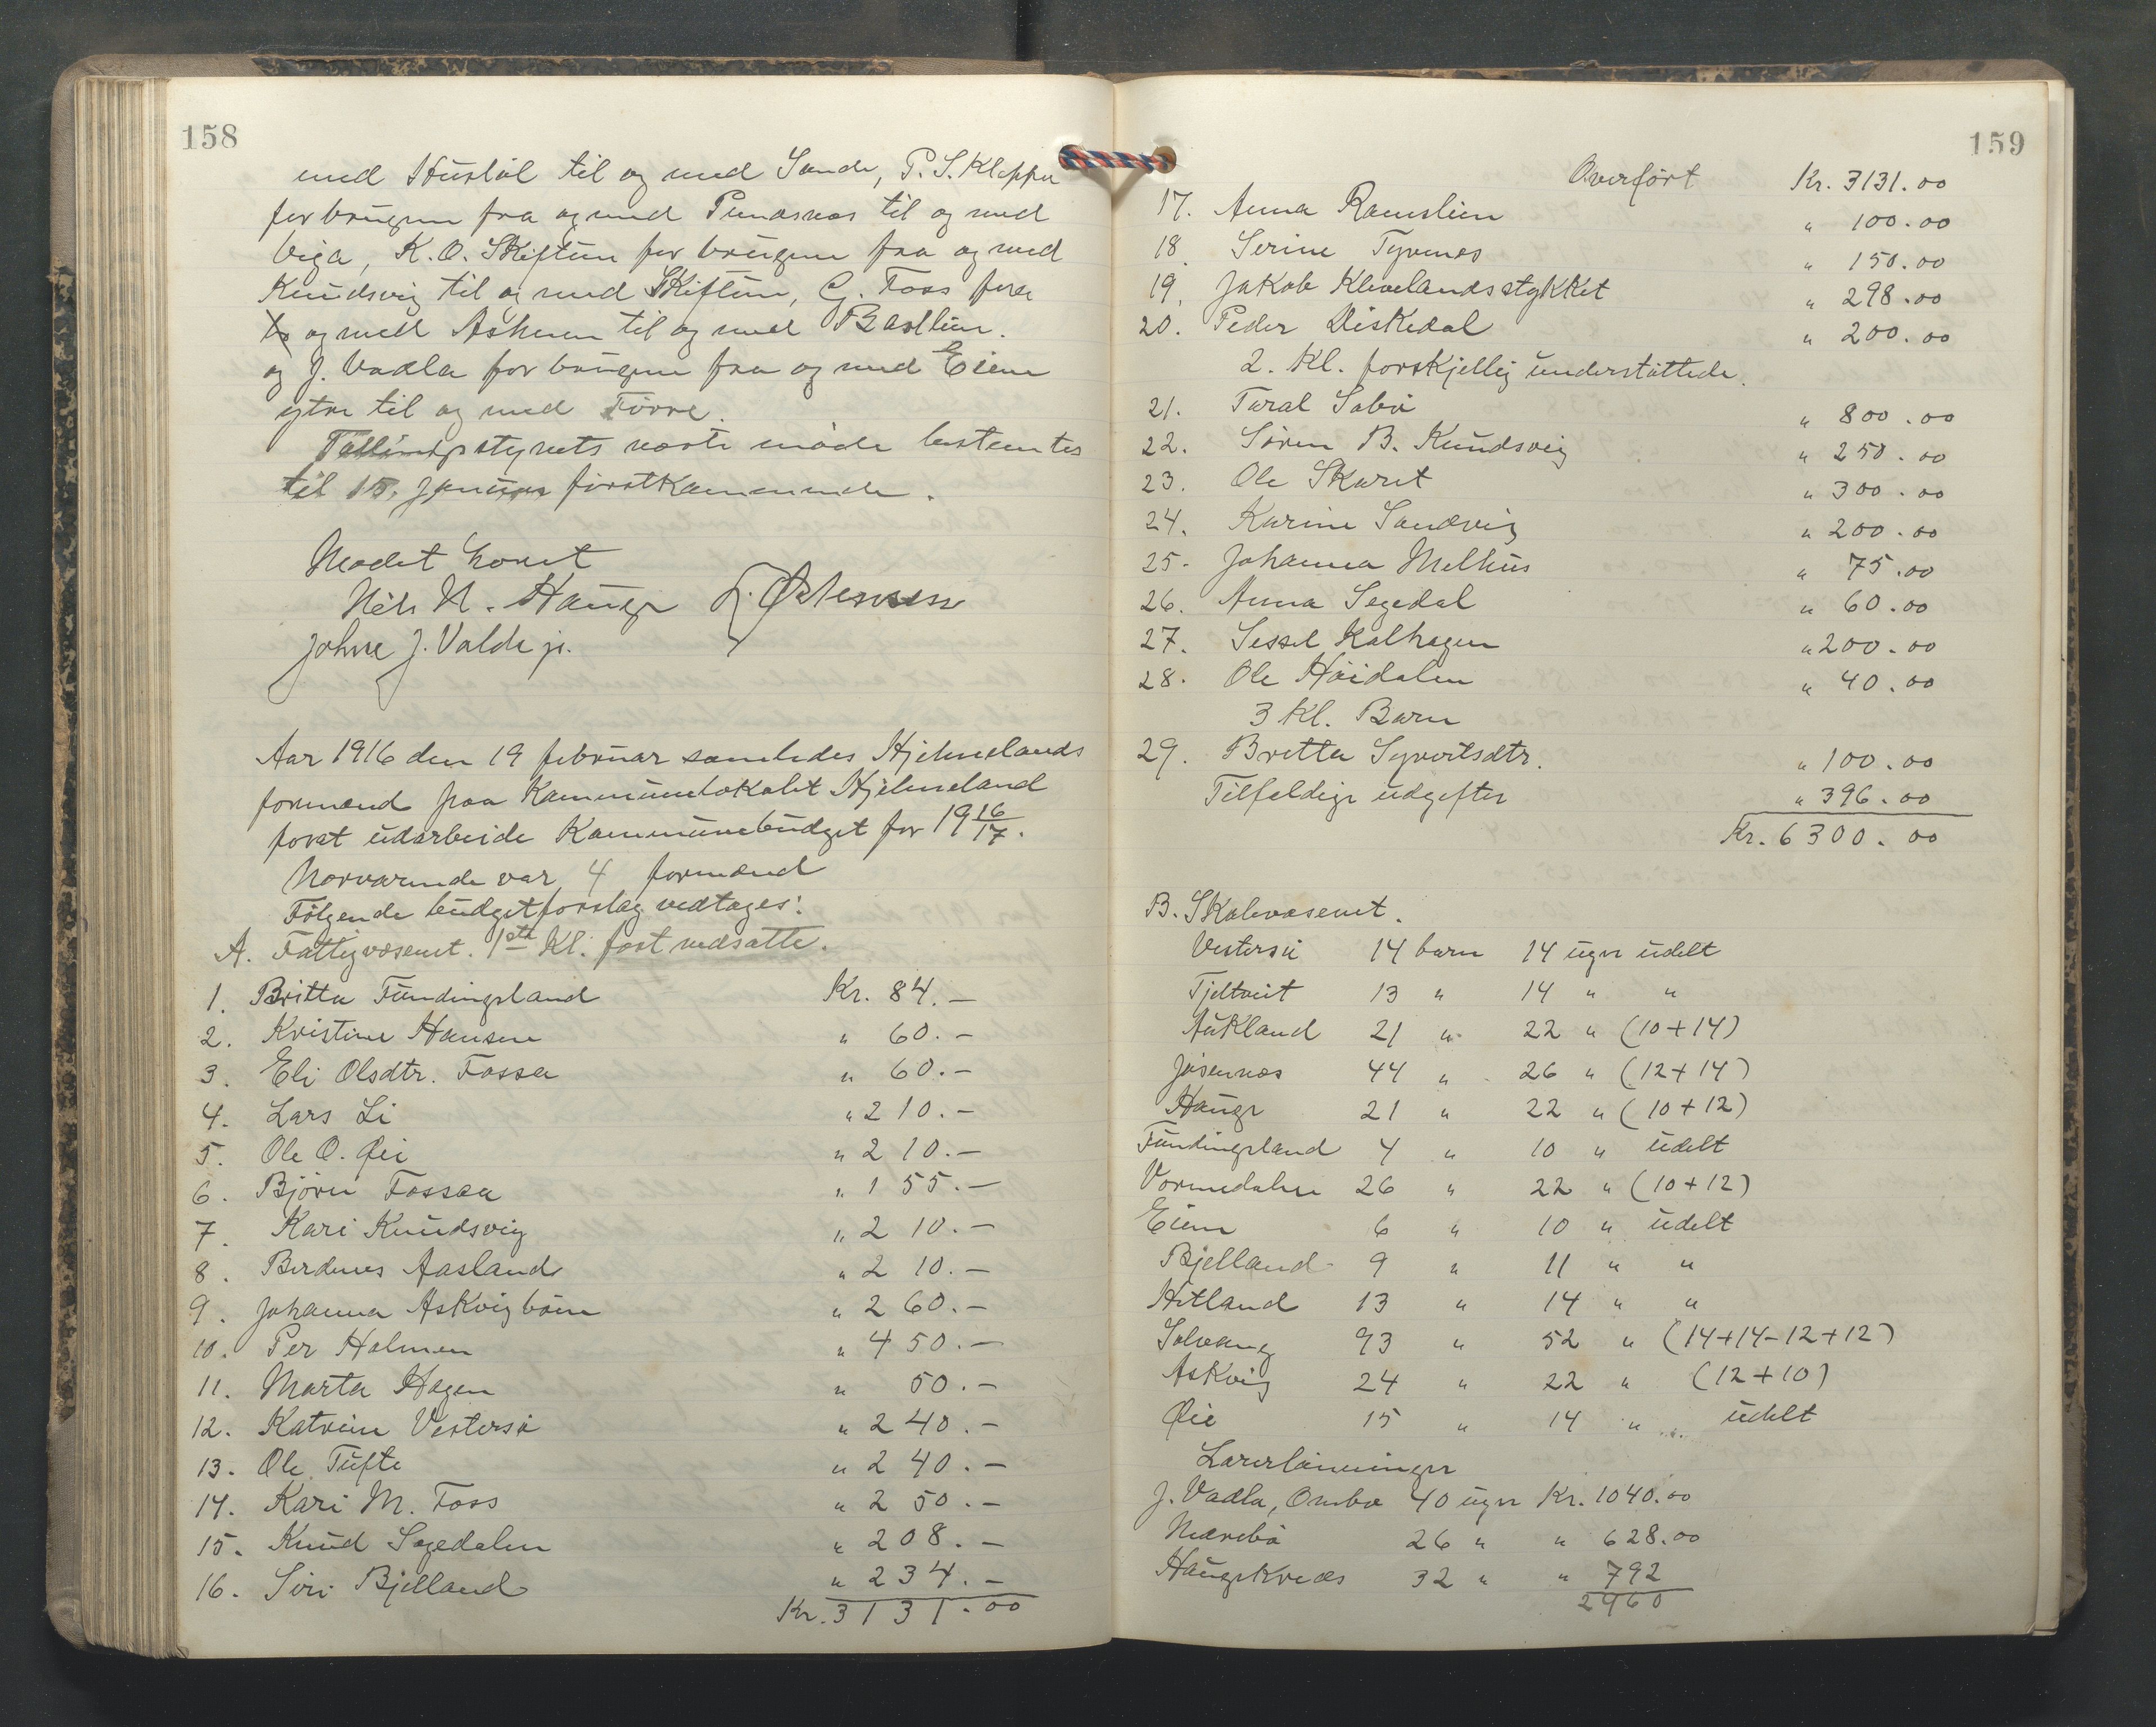 158
med Huslöl til og med Sande, P. S. Kleppa
for brugene fra og med Pundsnes til og med
Viga, K. O. Skiftun for brugene fra og med
Knudsvig til og med Skiftun, G. Foss fra
og med Askeren til og med Bastlien.
og J. Vadla for brugene fra og med Eiene
ytre til og med Törre.
Tællingsstyrets næste möde bestemtes
til 15. januar förstkommende.
Mödet hævet
Nels N. Hauge L. Östensen
Johne J. Valde jr.
Aar 1916 den 19 februar samledes Hjelmelands
formænd paa Kommunelokalet Hjelmeland
forat udarbeide Kommunebudget for 19 16/17.
Nærværende var 4 formænd
Fölgende budgetforslag vedtages:
A. Fattigvæsenet. 1ste Kl. fast nedsatte.
1. Britta Fundingsland Kr. 84.-
2. Kristine Hansen " 60.-
3. Eli Olsdtr. Fossa " 60.-
4. Lars Li " 210.-
5. Ole O. Øie " 210.-
6. Björn Fossaa " 155.-
7. Kari Knudsvig " 210.-
8. Berdines Aasland " 210.-
9. Johanna Askvigbön " 260.-
10. Per Holmen " 450.-
11. Marta Hagen " 50.-
12. Katrine Vestersö " 240.-
13. Ole Tufte " 240.-
14. Kari M. Foss " 250.-
15. Knud Segedalen " 208.-
16. Siri Bjelland " 234.-
Kr. 3131.00
159
Overfört Kr. 3131.00
17. Anna Ramslien " 100.00
18. Serine Tyvenes " 150.00
19. Jakob Klevelandsstykket " 298.00
20. Peder Diskedal " 200.00
2. Kl. forskjellig understöttede.
21. Taral Sabö " 800.00
22. Sören B. Knudsvig " 250.00
23. Ole Skaret " 300.00
24. Karine Sandvig " 200.00
25. Johanna Melhus " 75.00
26. Anna Segedal " 60.00
27. Sessel Kalhagen " 200.00
28. Ole Höidalen " 40.00
3 Kl. Barn
29. Britta Syvertsdtr. " 100.00
Tilfeldige udgifter " 396.00
Kr. 6300.00
B. Skolevæsenet.
Vestersö 14 barn 14 uger udelt
Tjeltveit 13 " 14 " "
Aukland 21 " 22 " (10+14)
Jösennes 44 " 26 " (12+14)
Hauge 21 " 22 " (10+12)
Fundingsland 4 " 10 " udelt
Vormedalen 26 " 22 " (10+12)
Eiene 6 " 10 " udelt
Bjelland 9 " 11 " "
Hetland 13 " 14 " "
Solvang 93 " 52 " (14+14-12+12)
Askvig 24 " 22 " (12+10)
Øie 15 " 14 " udelt
Lærerlönninger
J. Vadla, Ombo 40 uger Kr. 1040.00
Nærebö 26 " " 628.00
Haugekreds 32 " " 792
2460